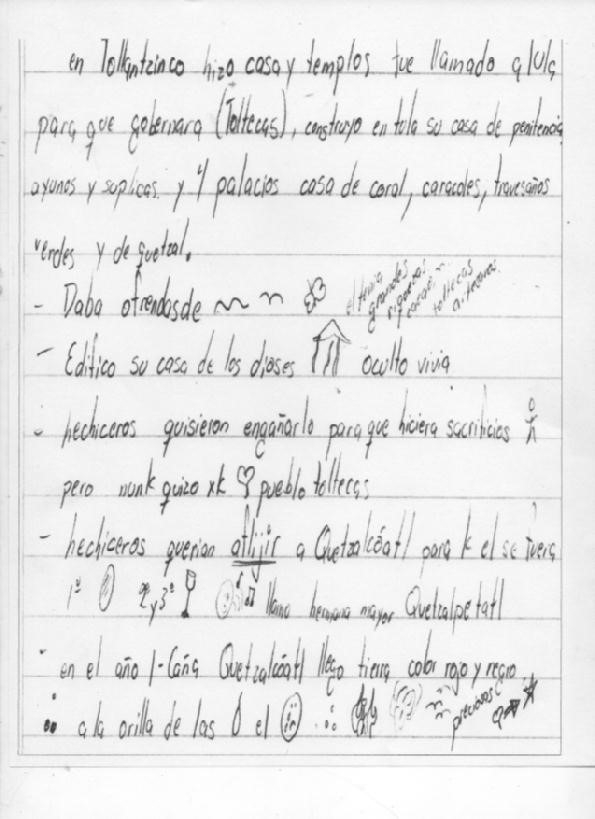 en Tollantzinco hizo casa y templos fue llamado a tula
para que gobernara (Toltecas), construyo en tula su casa de penitencia
ayunos y suplicas. y 4 palacios casa de coral, caracoles, travesaños
verdes y de quetzal.
- Daba ofrendas de
el tenia grandes riquezas toltecas
- Edifico su casa de los dioses oculto vivia
- hechiceros quisieron engañarlo para que hiciera sacrificios
pero nunk quizo xk pueblo toltecas
- hechiceros querian aflijir a Quetzalcóatl para k el se fuera
1º 2º y 3º llamo hermana mayor Quetzalpetatl
· en el año 1-Caña Quetzalcóatl llego tierra color rojo y negro
a la orilla de las el preciosas